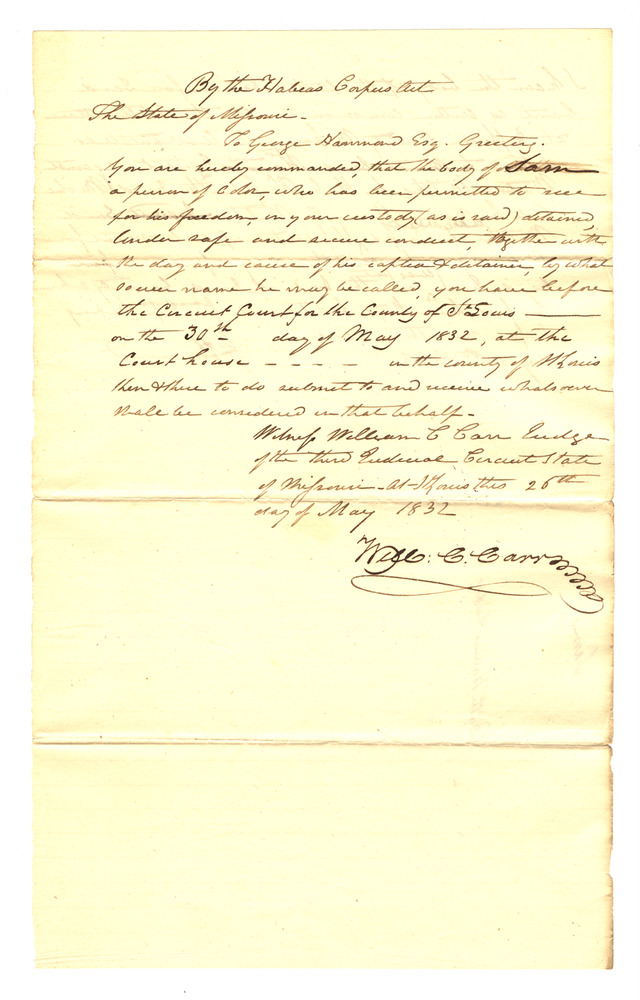 By the Habeas Corpus Act
The State of Missouri -
To George Hammond Esq. Greeting.
You are hereby commanded, that the body of Sam
a person of Color, who has been permitted to sue
for his freedom, in your custody (as is said) detained,
Under safe and secure conduct, together with
the day and cause of his caption & detainer, by what
soever name he may be called, you have before
the Circuit Court for the County of St Louis ———
on the 30th day of May 1832, at the
Court house - - - - in the county of St Louis
then & there to do submit to and receive whatsoever
shall be considered in that behalf -
Witness William C Carr Judge
of the third Judicial Circuit State
of Missouri - At St Louis this 26th
day of May 1832
Will. C. Carr